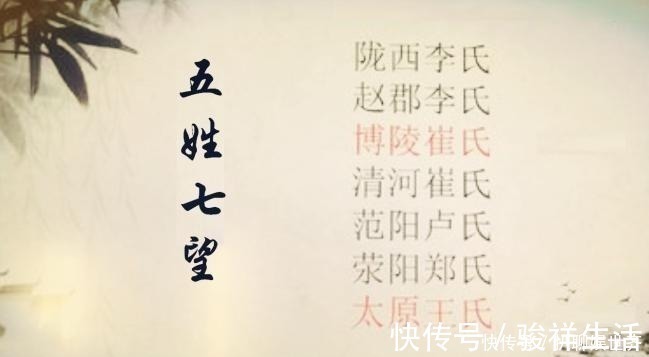 五姓七望
陇西李氏
赵郡李氏
博陵崔氏
清河崔氏
范阳卢氏
荥阳郑氏
太原王氏
快传号／骏祥生活
快传号